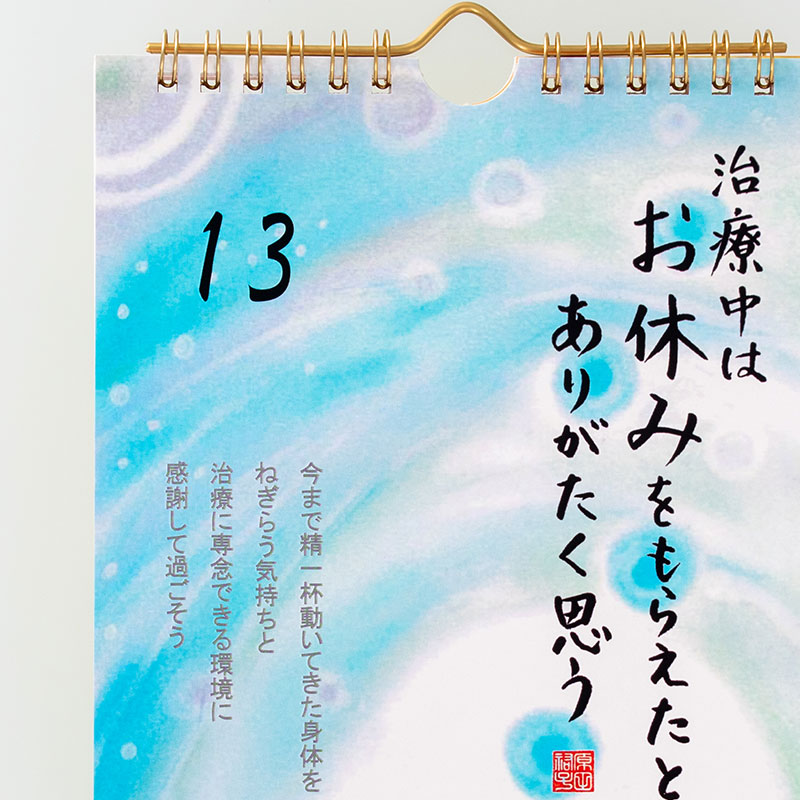 治療中は
お休みをもらえたと
ありがたく思う
13
今まで精一杯動いてきた身体を
ねぎらう気持ちと
治療に専念できる環境に
感謝して過ごそう